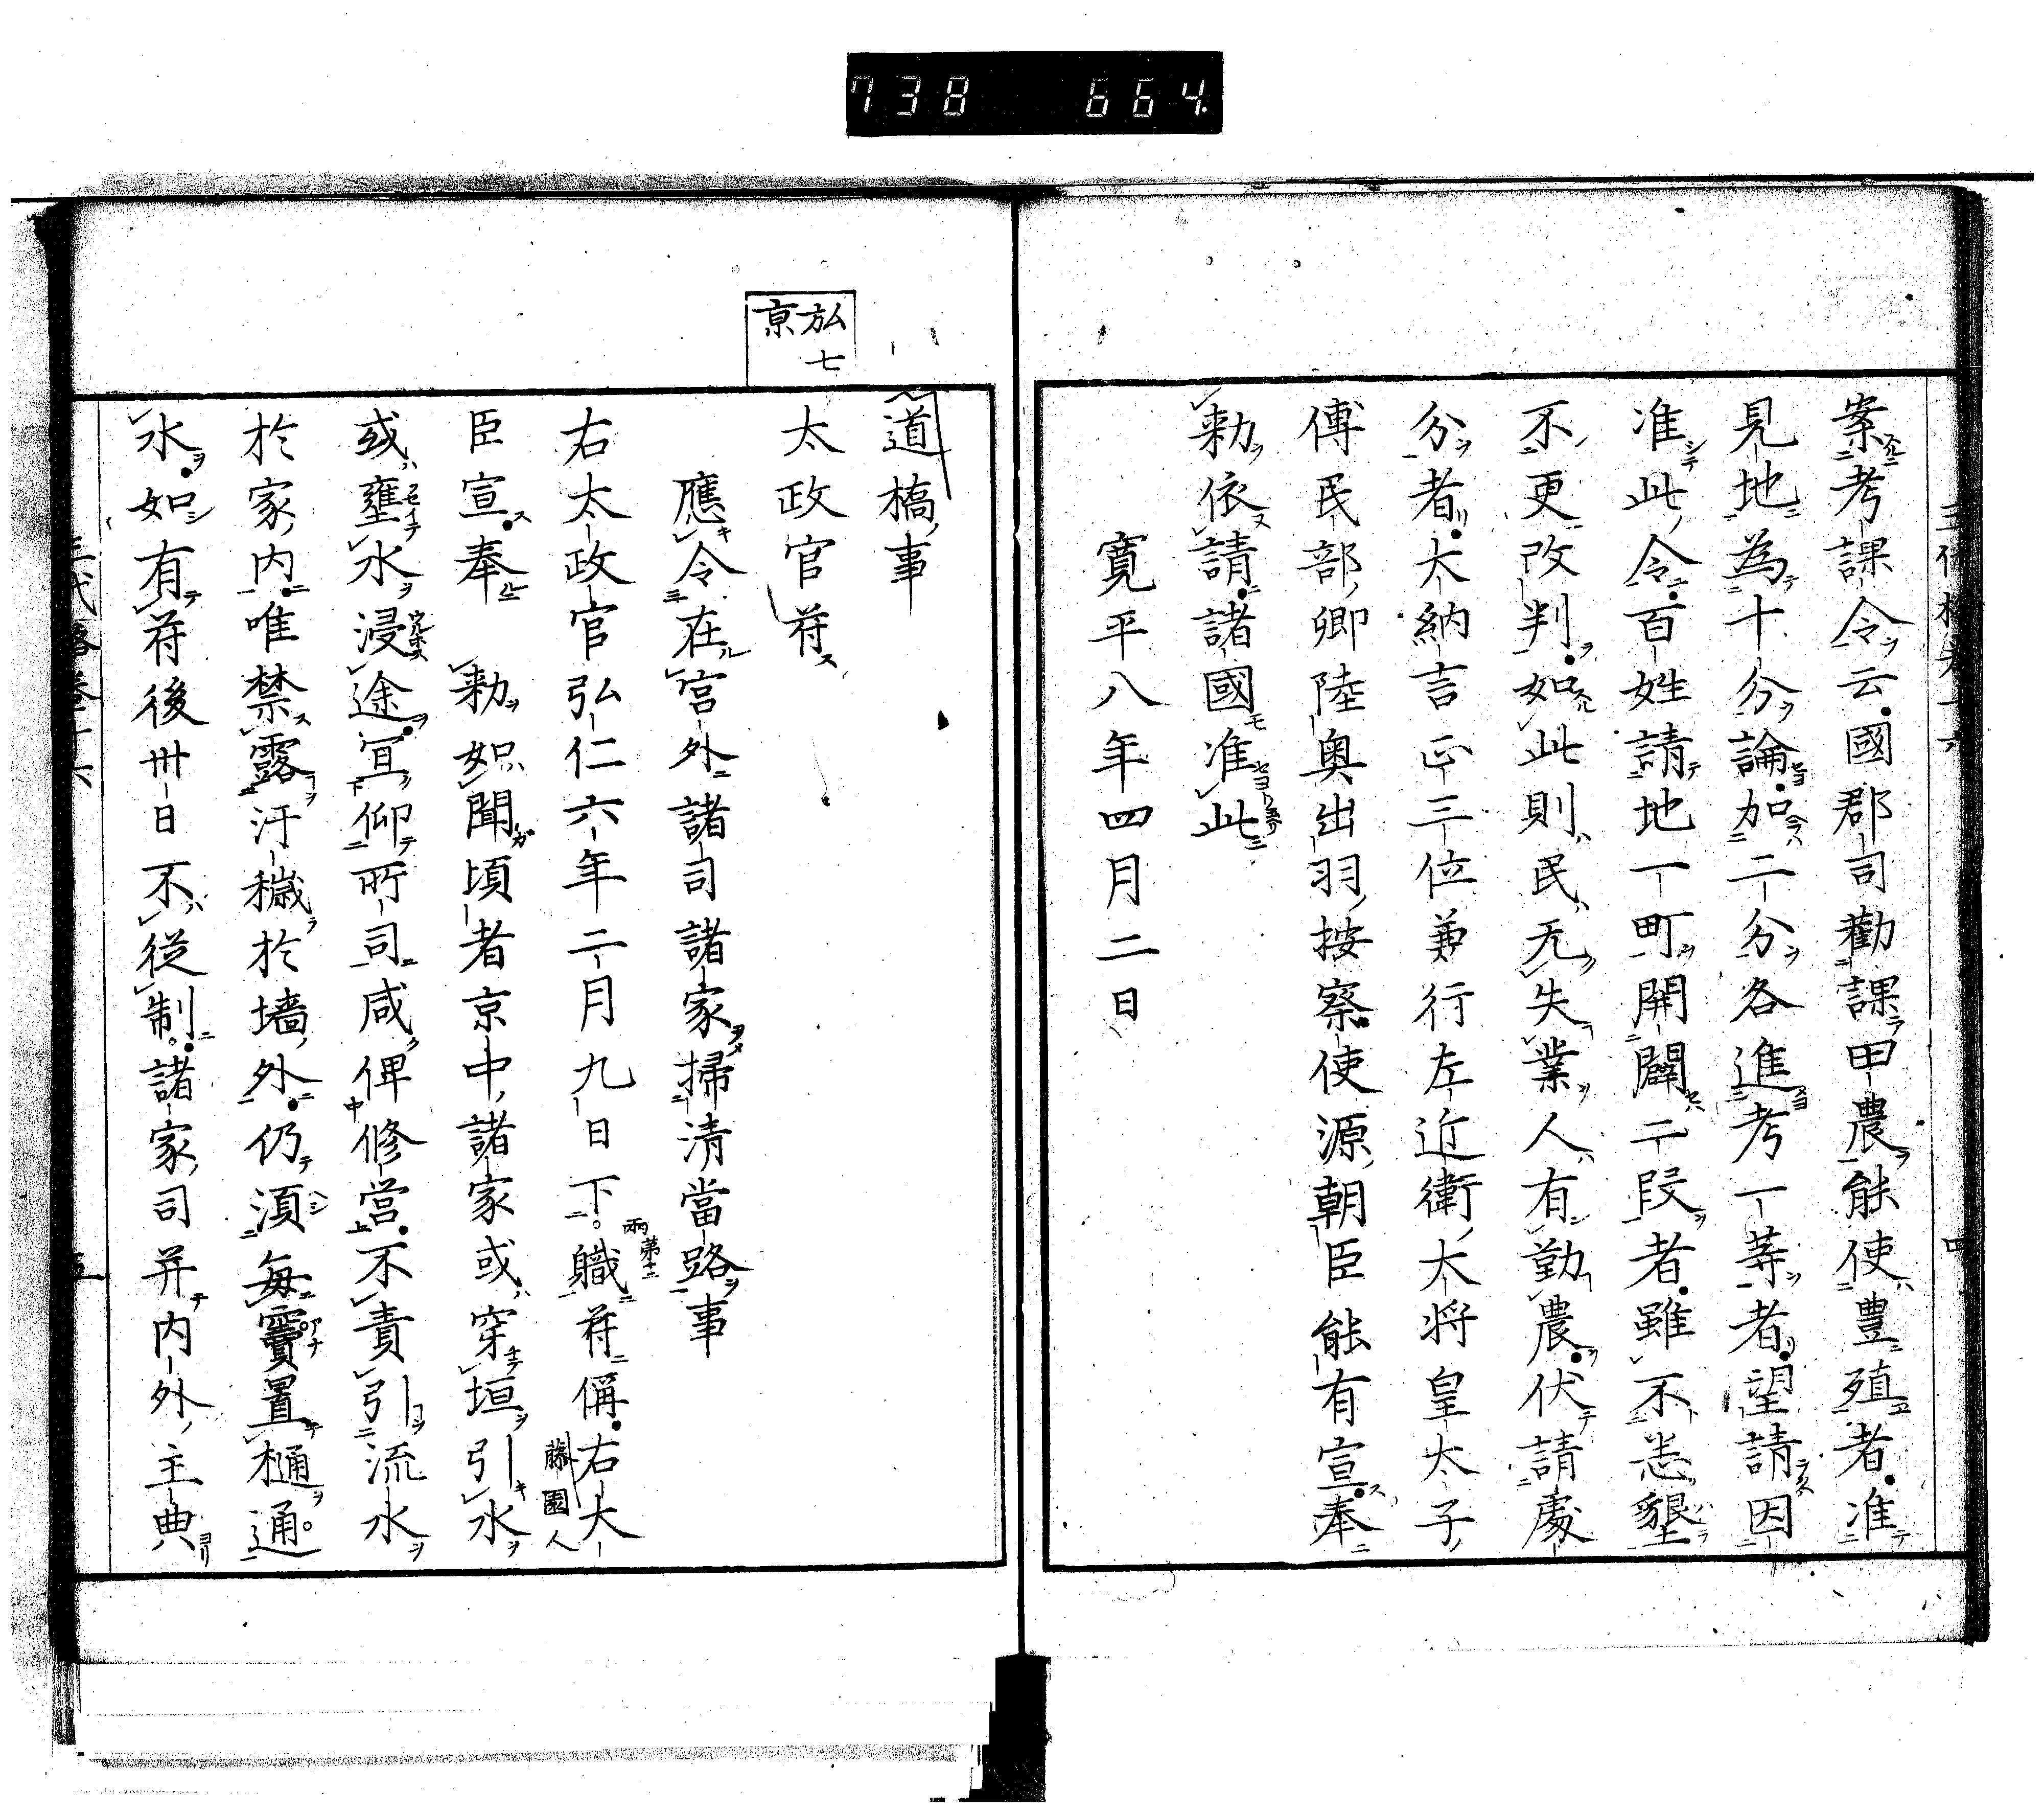 738 664
案考課令云國郡司勸課田農能使豊殖者准
見地為十分論加二分各進考一等者望請因
准此令百姓請地一町開闢二段者雖不悉墾
不更改判如此則民无失業人有勤農伏請處
分者大納言正三位兼行左近衛大将皇太子
傅民部卿陸奥出羽按察使源朝臣能有宣奉
勅依請諸國准此
寛平八年四月二日
弘七
京
道橋事
太政官符
應令在宮外諸司諸家掃清當路事
右太政官弘仁六年二月九日下職符偁右大
藤園人
臣宣奉 勅如聞頃者京中諸家或穿垣引水
或壅水浸途冝仰所司咸俾修営不責引流水
於家内唯禁露汙穢於墻外仍湏毎竇置樋通
水如有符後卅日不従制諸家司并内外主典